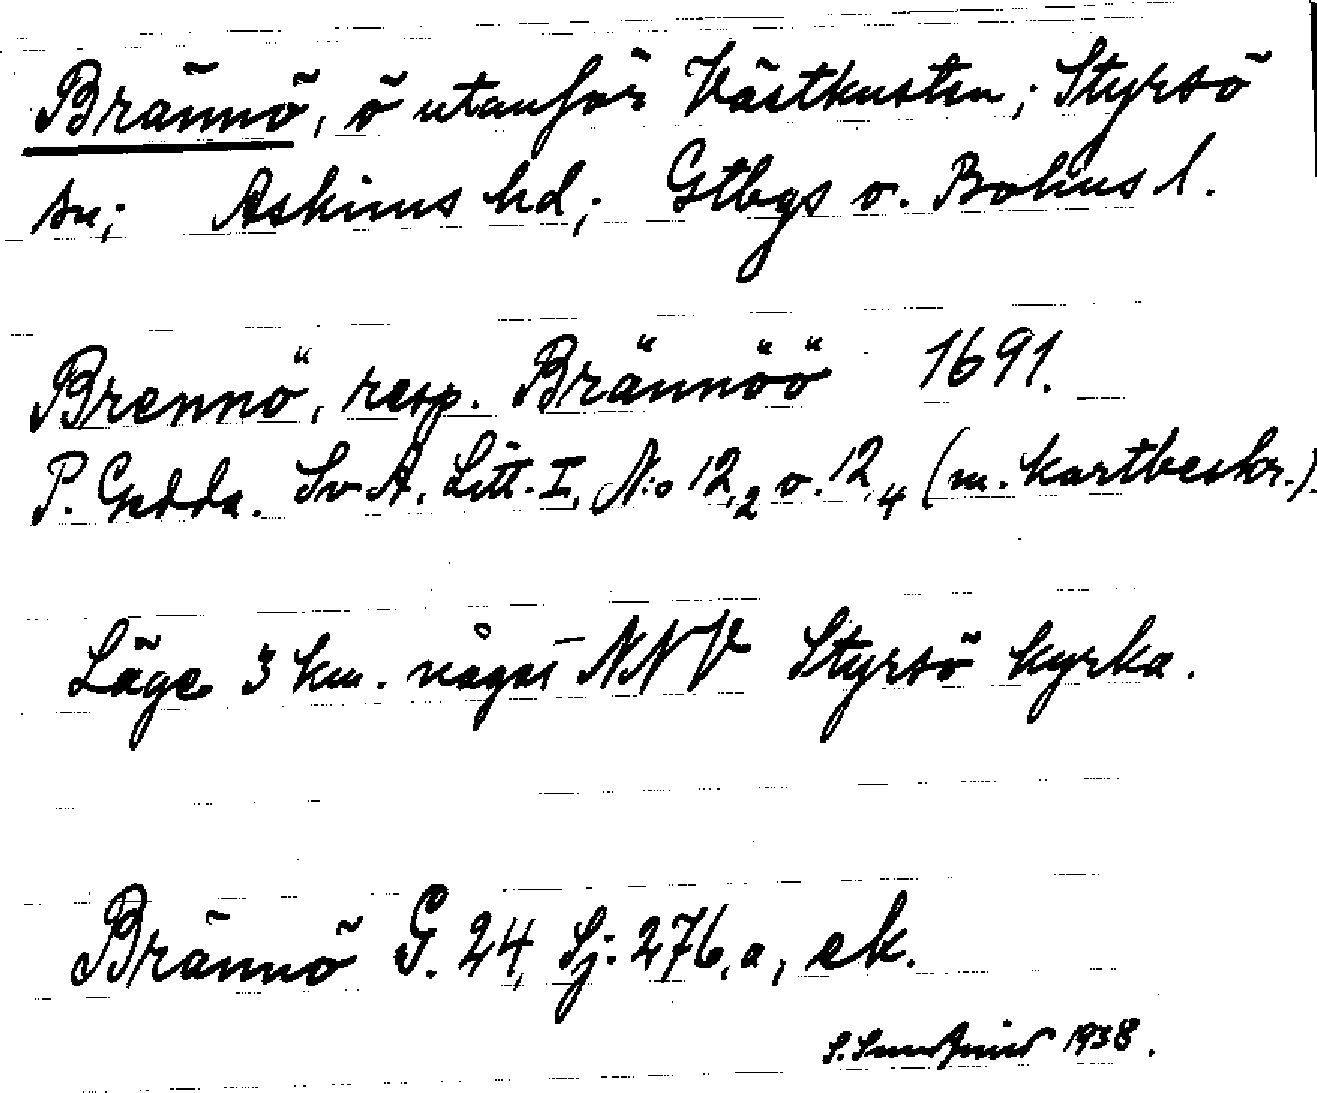 Brännö, ö utanför Västkusten; Styrsö
sn; Askims hd; Gtbgs o. Bohus l.
Brennö, resp. Brännöö 1691.
P. Gedda. Sv A. Litt. I, N:o 12,2 o. 12,4 (m. kartbeskr.).
Läge 3 km. något NNV Styrsö kyrka.
Brännö G. 24, Sj: 276, a, ek.
S. 1938.